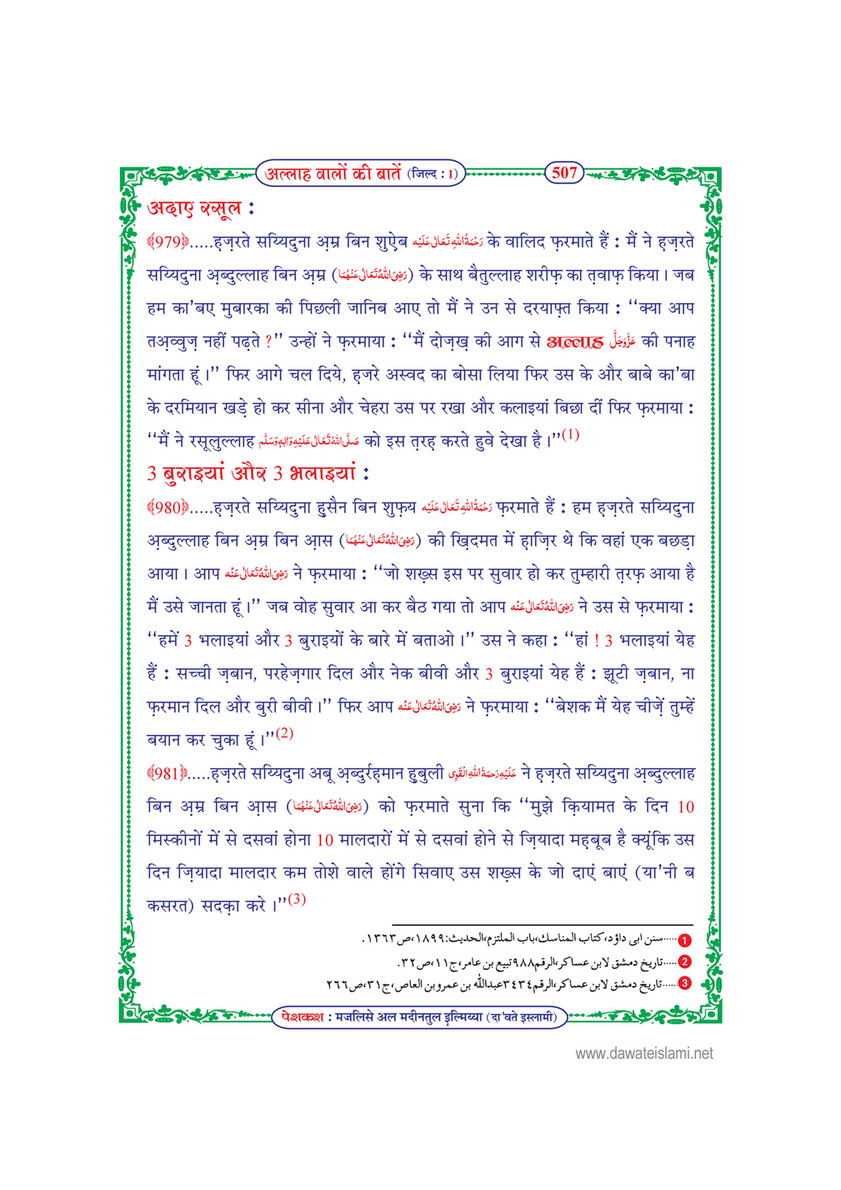 अल्लाह वालों की बातें (जिल्द : 1)
507
अदाए रसूल :
﴾979﴿.....हज़रते सय्यिदुना अ़म्र बिन शुऐ़ब رَحْمَةُ اللهِ تَعَالٰى عَلَيْه के वालिद फ़रमाते हैं : मैं ने हज़रते
सय्यिदुना अ़ब्दुल्लाह बिन अ़म्र (رَضِىَ اللهُ تَعَالٰى عَنْهُمَا) के साथ बैतुल्लाह शरीफ़ का त़वाफ़ किया । जब
हम का'बए मुबारका की पिछली जानिब आए तो मैं ने उन से दरयाफ़्त किया : ‘‘क्या आप
तअ़व्वुज़ नहीं पढ़ते ?’’ उन्हों ने फ़रमाया : ‘‘मैं दोज़ख़ की आग से अल्लाह عَزَّوَجَلَّ की पनाह
मांगता हूं ।’’ फिर आगे चल दिये, ह़जरे अस्वद का बोसा लिया फिर उस के और बाबे का'बा
के दरमियान खड़े हो कर सीना और चेहरा उस पर रखा और कलाइयां बिछा दीं फिर फ़रमाया :
‘‘मैं ने रसूलुल्लाह صَلَّى اللهُ تَعَالٰى عَلَيْهِ وَاٰلِهٖ وَسَلَّم को इस त़रह़ करते हुवे देखा है ।’’(1)
3 बुराइयां और 3 भलाइयां :
﴾980﴿.....हज़रते सय्यिदुना हु़सैन बिन शुफ़य رَحْمَةُ اللهِ تَعَالٰى عَلَيْه फ़रमाते हैं : हम हज़रते सय्यिदुना
अ़ब्दुल्लाह बिन अ़म्र बिन आ़स (رَضِىَ اللهُ تَعَالٰى عَنْهُمَا) की ख़िदमत में ह़ाज़िर थे कि वहां एक बछड़ा
आया । आप رَضِىَ اللهُ تَعَالٰى عَنْه ने फ़रमाया : ‘‘जो शख़्स इस पर सुवार हो कर तुम्हारी त़रफ़ आया है
मैं उसे जानता हूं ।’’ जब वोह सुवार आ कर बैठ गया तो आप رَضِىَ اللهُ تَعَالٰى عَنْه ने उस से फ़रमाया :
‘‘हमें 3 भलाइयां और 3 बुराइयों के बारे में बताओ ।’’ उस ने कहा : ‘‘हां ! 3 भलाइयां येह
हैं : सच्ची ज़बान, परहेज़गार दिल और नेक बीवी और 3 बुराइयां येह हैं : झूटी ज़बान, ना
फ़रमान दिल और बुरी बीवी ।’’ फिर आप رَضِىَ اللهُ تَعَالٰى عَنْه ने फ़रमाया : ‘‘बेशक मैं येह चीज़ें तुम्हें
बयान कर चुका हूं ।’’(2)
﴾981﴿.....हज़रते सय्यिदुना अबू अ़ब्दुर्रह़मान हु़बुली عَلَيْهِ رَحْمَةُ اللهِ الْقَوِى ने हज़रते सय्यिदुना अ़ब्दुल्लाह
बिन अ़म्र बिन आ़स (رَضِىَ اللهُ تَعَالٰى عَنْهُمَا) को फ़रमाते सुना कि ‘‘मुझे क़ियामत के दिन 10
मिस्कीनों में से दसवां होना 10 मालदारों में से दसवां होने से ज़ियादा मह़बूब है क्यूंकि उस
दिन ज़ियादा मालदार कम तोशे वाले होंगे सिवाए उस शख़्स के जो दाएं बाएं (या'नी ब
कसरत) सदक़ा करे ।’’(3)
1 .....سنن ابی داؤد،کتاب المناسك،باب الملتزم،الحديث:١٨٩٩،ص١٣٦٣.
2 .....تاریخ دمشق لابن عساکر،الرقم٩٨٨تبیع بن عامر،ج١١،ص٣٢.
3 .....تاریخ دمشق لابن عساکر،الرقم٣٤٣٤عبدالله بن عمروبن العاص،ج٣١،ص٢٦٦
पेशकश : मजलिसे अल मदीनतुल इ़ल्मिय्या (दा'वते इस्लामी)
www.dawateislami.net